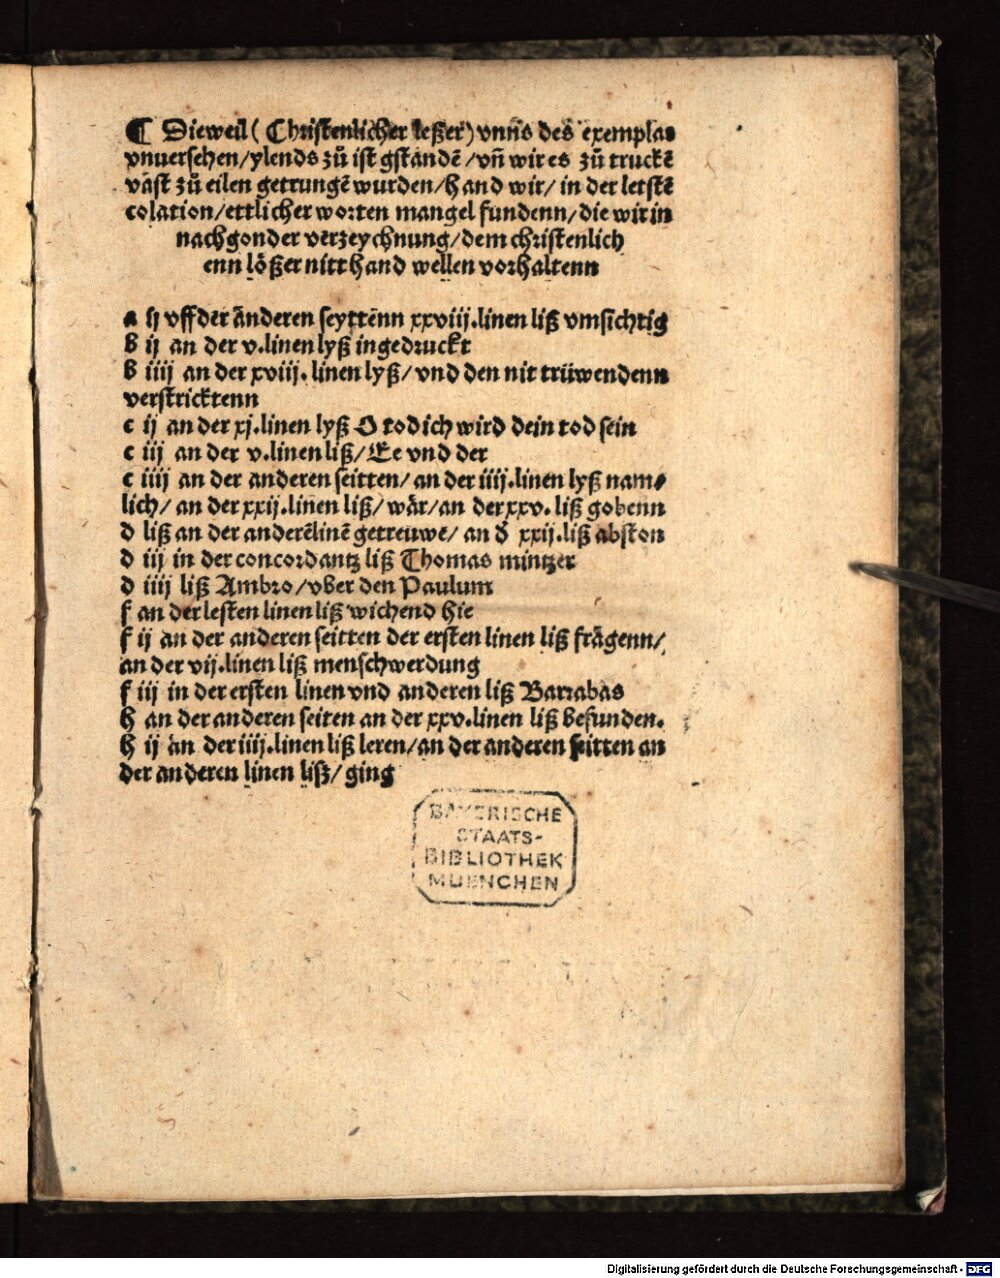 ¶ Dieweil ( Christenlicher leßer) vnns des exemplas
vnuersehen/ylends zů ist gstandẽ /vñ wir es zů truckẽ
vast zů eilen getrungẽ wurden/hand wir/ in der letstẽ
colation/ettlicher worten mangel fundenn/die wir in
nachgonder verzeychnung/dem christenlich
enn lößer nitt hand wellen vorhaltenn
a ij vff der anderen seyttenn xxviij.linen liß vmsichtig
b ij an der v.linen lyß ingedruckt
b iiij an der xviij.linen lyß/ vnd den nit trüwendenn
verstricktenn
c ij an der xj.linen lyß O tod ich wird dein tod sein
c iij an der v.linen liß/ Ee vnd der
c iiij an der anderen seitten/ an der iiij.linen lyß nam⸗
lich/ an der xxij.linen liß/ wår/an der xxv. liß gobenn
d liß an der anderẽ linẽ getreuwe/ an d̕ xxij.liß abston
d iij in der concordantz liß Thomas mintzer
d iiij liß Ambro/vber den Paulum
f an der lesten linen liß wichend hie
f ij an der anderen seitten der ersten linen liß frågenn/
an der vij.linen liß menschwerdung
f iij in der ersten linen vnd anderen liß Barrabas
h an der anderen seiten an der xxv.linen liß befunden.
h ij an der iiij.linen liß leren/an der anderen seitten an
der anderen linen lisz/ ging
BAYERISCHE
STAATS-
BIBLIOTHEK
MUENCHEN
Digitalisierung gefördert durch die Deutsche Forschungsgemeinschaft - DFG